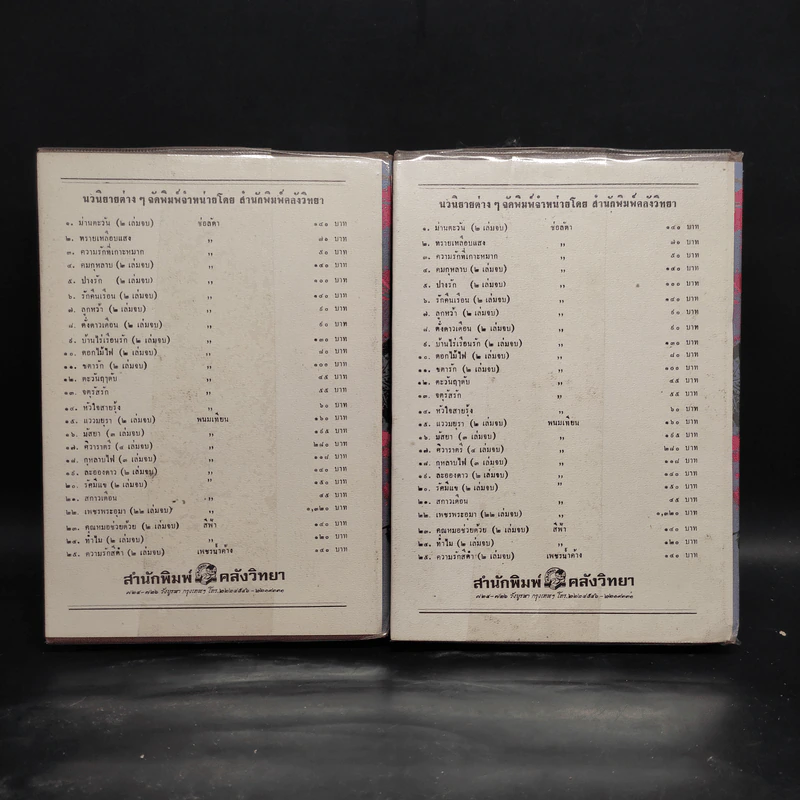 นวนิยายต่าง ๆ จัดพิมพ์จำหน่ายโดย สำนักพิมพ์คลังวิทยา
๑. ม่านตะวัน (๒ เล่มจบ) ช่อลัดา ๑๔๐ บาท
๒. ทรายเหลือบแสง ,, ๗๐ บาท
๓. ความรักที่เกาะหมาก ,, ๕๐ บาท
๔. คมกุหลาบ (๒ เล่มจบ) ,, ๑๔๐ บาท
๕. ปางรัก (๒ เล่มจบ) ,, ๑๐๐ บาท
๖. รักคืนเรือน (๒ เล่มจบ) ,, ๑๔๐ บาท
๗. ลูกหว้า (๒ เล่มจบ) ,, ๙๐ บาท
๘. ดั่งดาวเตือน (๒ เล่มจบ) ,, ๙๐ บาท
๙. บ้านไร่เรือนรัก (๒ เล่มจบ) ,, ๑๓๐ บาท
๑๐. ดอกไม้ไฟ (๒ เล่มจบ) ,, ๘๐ บาท
๑๑. ขตารัก (๒ เล่มจบ) ,, ๑๐๐ บาท
๑๒. ตะวันฤๅดับ ,, ๔๕ บาท
๑๓. จตุรัสรัก ,, ๕๕ บาท
๑๔. หัวใจสายรุ้ง ,, ๖๐ บาท
๑๕. แววมยุรา (๒ เล่มจบ) พนมเทียน ๑๖๐ บาท
๑๖. มัสยา (๓ เล่มจบ) ,, ๑๙๕ บาท
๑๗. ศิวาราตรี (๔ เล่มจบ) ,, ๒๘๐ บาท
๑๘. กุหลาบไฟ (๓ เล่มจบ) ,, ๑๑๘ บาท
๑๙. ละอองดาว (๒ เล่มจบ) ,, ๑๔๐ บาท
๒๐. รัศมีแข (๒ เล่มจบ) ,, ๑๕๐ บาท
๒๑. สกาวเดือน ,, ๔๕ บาท
๒๒. เพชรพระอุมา (๒๒ เล่มจบ) ,, ๑,๓๒๐ บาท
๒๓. คุณหมอช่วยด้วย (๒ เล่มจบ) สีฟ้า ๑๔๐ บาท
๒๔. ทำไม (๒ เล่มจบ) ,, ๑๒๐ บาท
๒๕. ความรักสีดำ (๒ เล่มจบ) เพชรน้ำค้าง ๑๔๐ บาท
สำนักพิมพ์ คลังวิทยา
นวนิยายต่าง ๆ จัดพิมพ์จำหน่ายโดย สำนักพิมพ์คลังวิทยา
๑. ม่านตะวัน (๒ เล่มจบ) ช่อลัดา ๑๔๐ บาท
๒. ทรายเหลือบแสง ,, ๗๐ บาท
๓. ความรักที่เกาะหมาก ,, ๕๐ บาท
๔. คมกุหลาบ (๒ เล่มจบ) ,, ๑๔๐ บาท
๕. ปางรัก (๒ เล่มจบ) ,, ๑๐๐ บาท
๖. รักคืนเรือน (๒ เล่มจบ) ,, ๑๔๐ บาท
๗. ลูกหว้า (๒ เล่มจบ) ,, ๙๐ บาท
๘. ดั่งดาวเตือน (๒ เล่มจบ) ,, ๙๐ บาท
๙. บ้านไร่เรือนรัก (๒ เล่มจบ) ,, ๑๓๐ บาท
๑๐. ดอกไม้ไฟ (๒ เล่มจบ) ,, ๘๐ บาท
๑๑. ขตารัก (๒ เล่มจบ) ,, ๑๐๐ บาท
๑๒. ตะวันฤๅดับ ,, ๔๕ บาท
๑๓. จตุรัสรัก ,, ๕๕ บาท
๑๔. หัวใจสายรุ้ง ,, ๖๐ บาท
๑๕. แววมยุรา (๒ เล่มจบ) พนมเทียน ๑๖๐ บาท
๑๖. มัสยา (๓ เล่มจบ) ,, ๑๙๕ บาท
๑๗. ศิวาราตรี (๔ เล่มจบ) ,, ๒๘๐ บาท
๑๘. กุหลาบไฟ (๓ เล่มจบ) ,, ๑๑๘ บาท
๑๙. ละอองดาว (๒ เล่มจบ) ,, ๑๔๐ บาท
๒๐. รัศมีแข (๒ เล่มจบ) ,, ๑๕๐ บาท
๒๑. สกาวเดือน ,, ๔๕ บาท
๒๒. เพชรพระอุมา (๒๒ เล่มจบ) ,, ๑,๓๒๐ บาท
๒๓. คุณหมอช่วยด้วย (๒ เล่มจบ) สีฟ้า ๑๔๐ บาท
๒๔. ทำไม (๒ เล่มจบ) ,, ๑๒๐ บาท
๒๕. ความรักสีดำ (๒ เล่มจบ) เพชรน้ำค้าง ๑๔๐ บาท
สำนักพิมพ์ คลังวิทยา